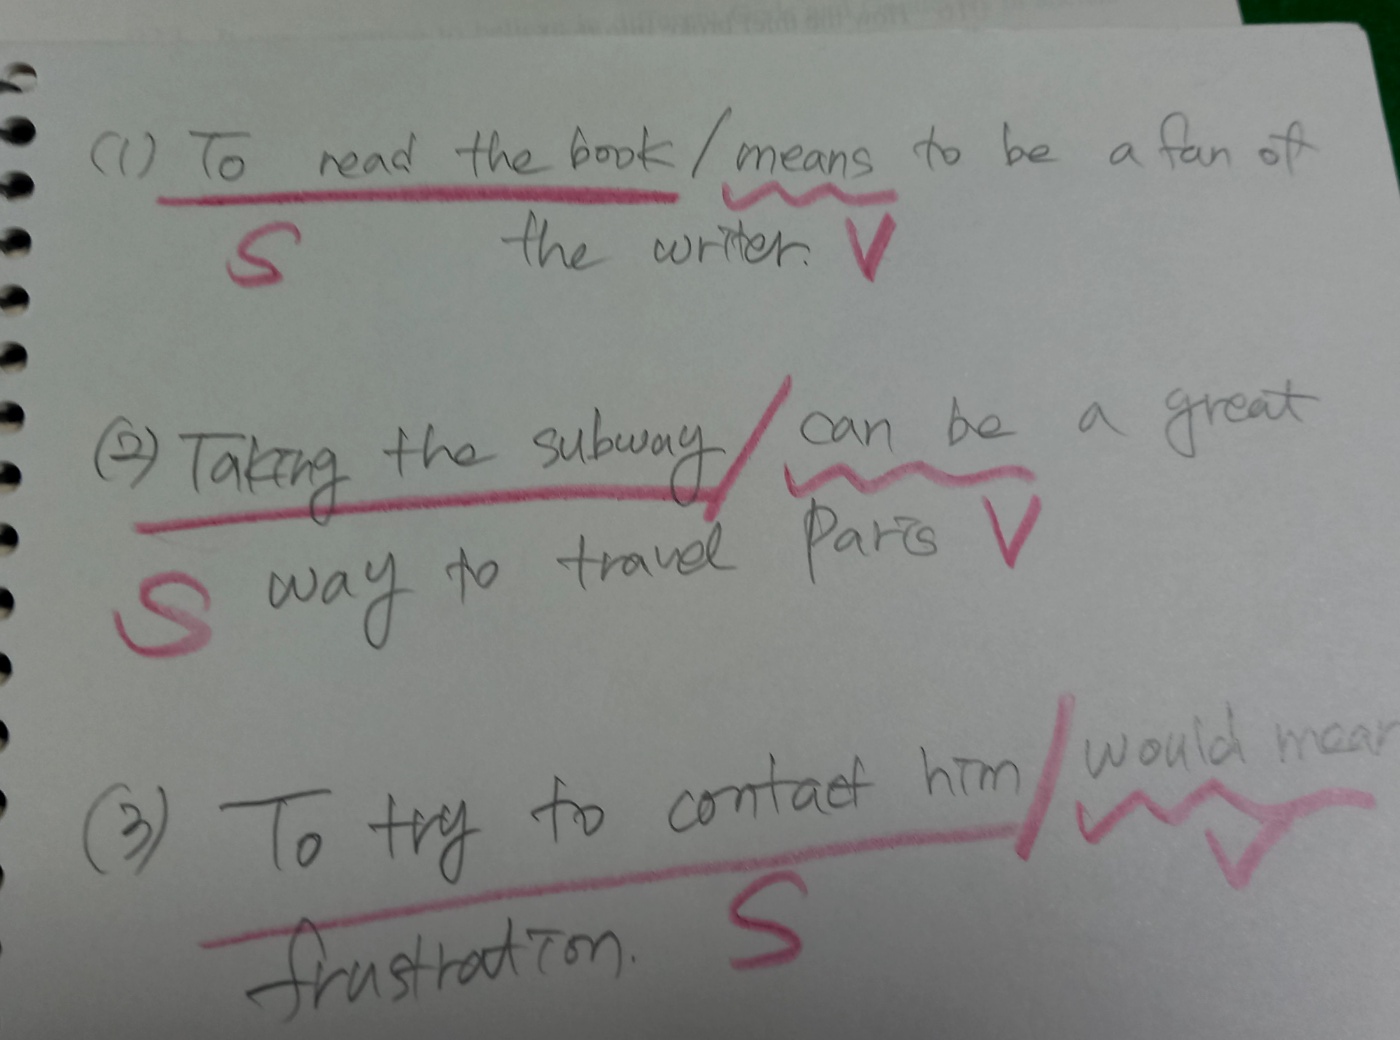 (1) To read the book / means to be a fan of
S the writer. V
(2) Taking the subway / can be a great
S way to travel Paris V
(3) To try to contact him / would mean
V
frustration. S